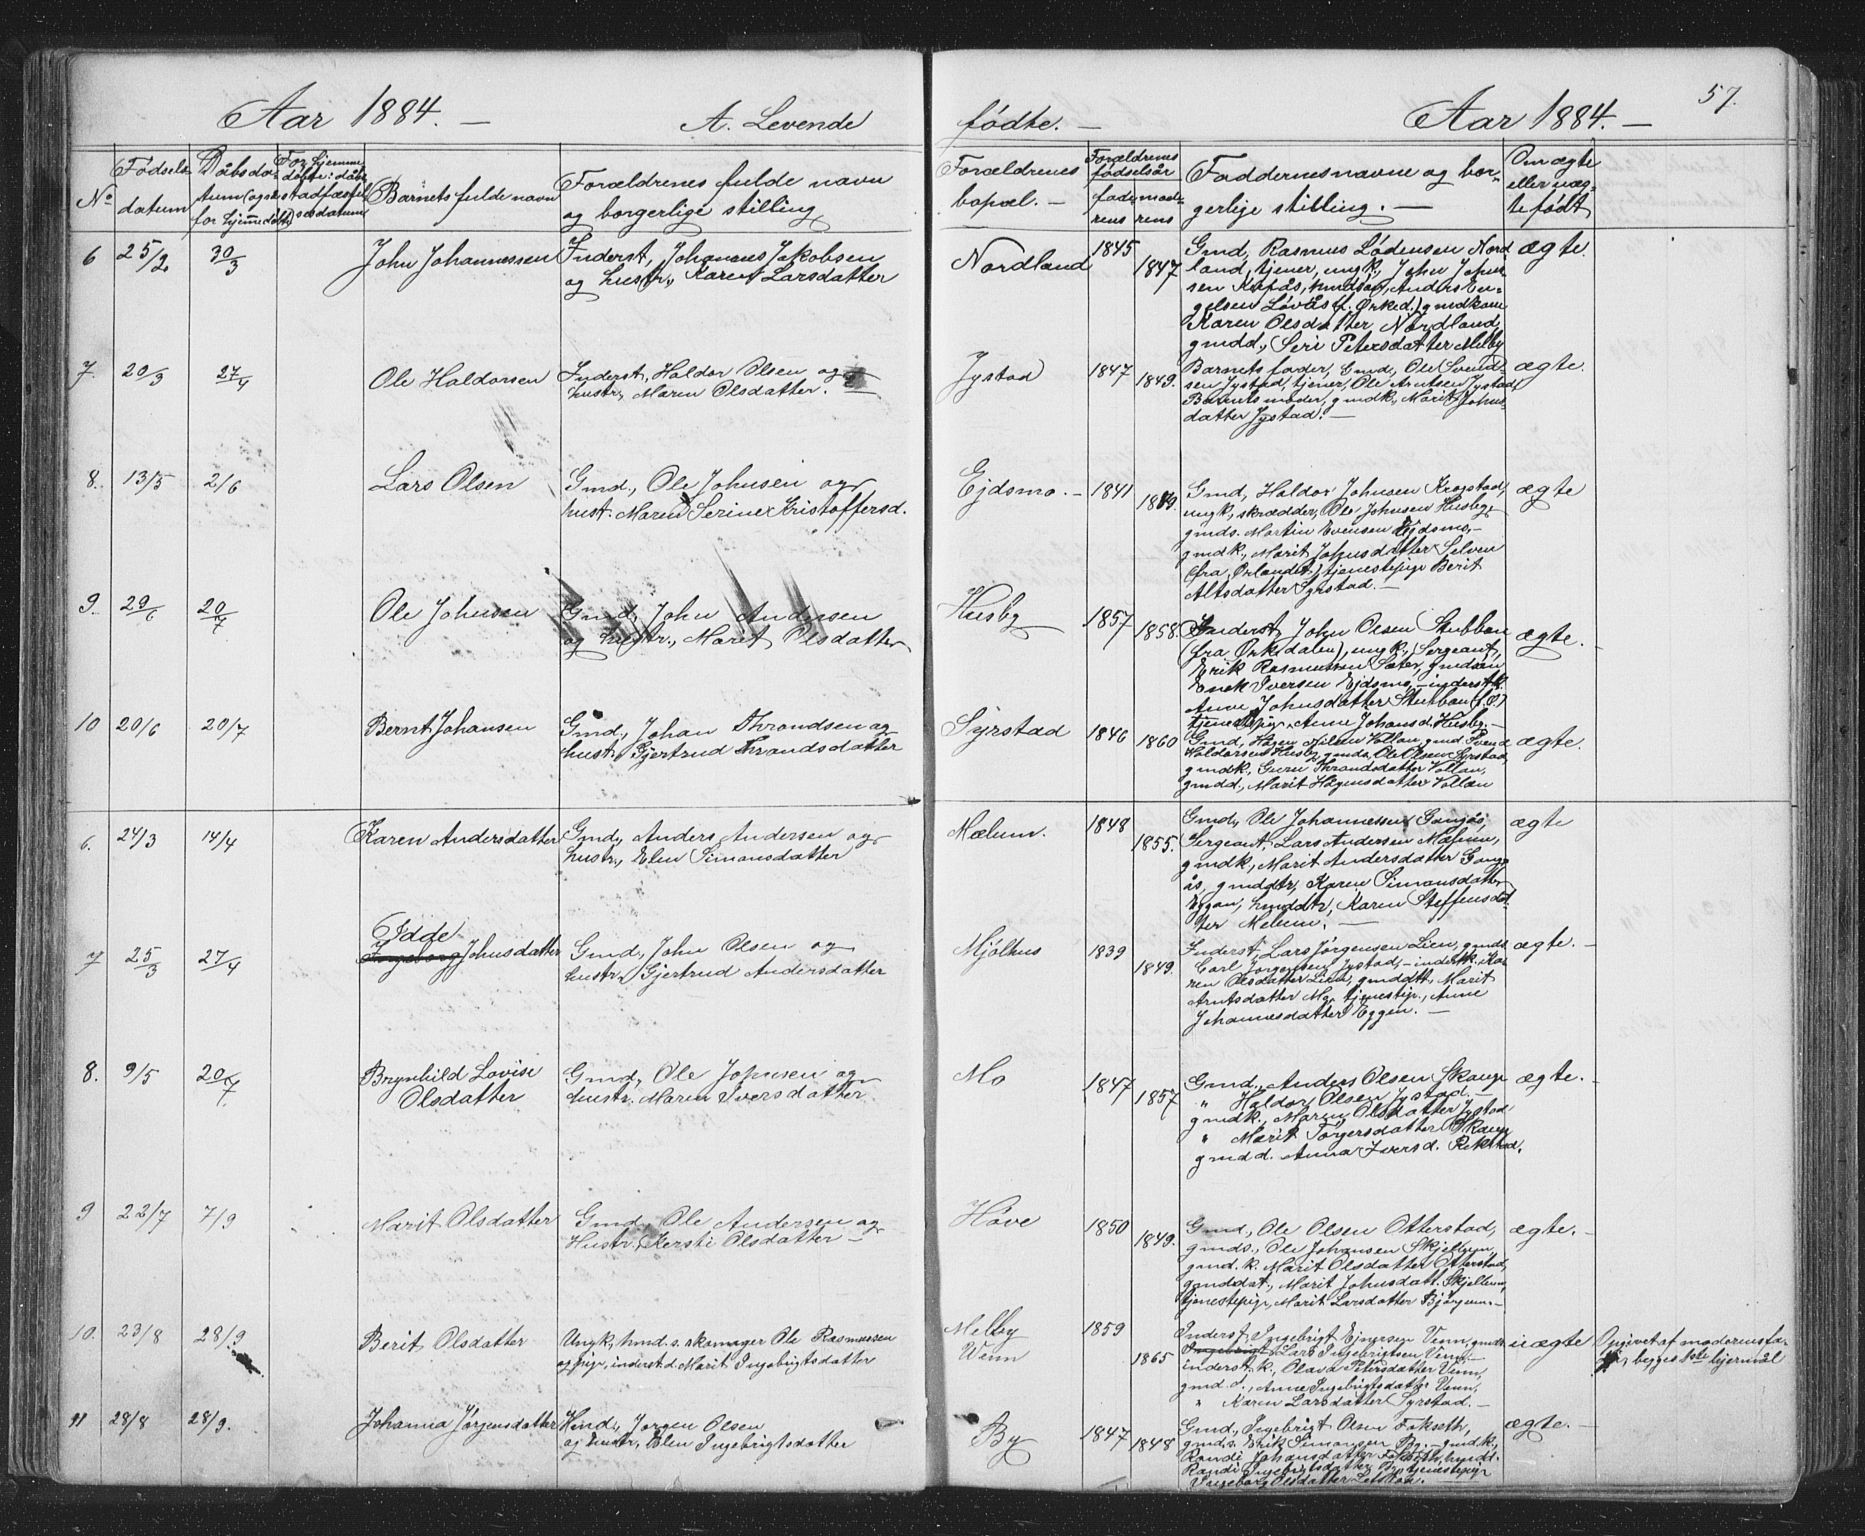 57.
Aar 1884. — A. Levende
fødte. — Aar 1884. —
No
Fødsels
datum
Dåbsda-
tum (også
for hjemmedøbt)
For hjemme
døbte: dåbs
stadfæstel
sesdatum
Barnets fulde navn
Forældrenes fulde navn
og borgerlige stilling
Forældrenes
bopæl. —
Forældrenes
fødselsår
fade-
rens
mode-
rens
Faddernes navne og bor-
gerlige stilling. —
Om ægte
eller uæg-
te født
6 25/2 30/3 John Johannessen
Inderst, Johannes Jakobsen
og hustr., Karen Larsdatter
Nordland 1845 1847
Gmd, Rasmus Lødensen Nord
land, tjener, ungk., John Johns
sen Anders En-
gelsen Løvås (f. Ørked.) gmdkone
Karen Olsdatter Nordland,
gmdd., Seri Petersdatter Melby
ægte.
7. 20/3 27/4 Ole Haldorsen
Inderst, Haldor Olsen og
hustr, Maren Olsdatter. —
Jystad 1847 1849.
Barnets fader, Gmd, Ole Svend-
sen Jystad, tjener, Ole Arntsen Jystad,
Barnets moder, gmdk., Marit Johns-
datter Jystad. —
ægte.
8. 13/5 2/6 Lars Olsen
Gmd., Ole Johnsen og
hust. Maren Serine Kristoffersd.
Ejdsmo. - 1841
Gmd, Haldor Johnsen Krogstad,
ungk, skrædder, Ole Johnsen Husby,
gmds. Martin Evensen Ejdsmo, -
gmdk., Marit Johnsdatter Selven
(fra Ørlandet), tjenestepige Berit
Altsdatter Syrstad. —
ægte
9. 29/6 20/7 Ole Johnsen
Gmd, John Andersen
og hustr., Marit Olsdatter
Husby 1857 1858.
Inderst, John Olsen Stubban
(fra Ørkedalen), ungk, Sergeant,
Erik Rasmussen Sæter, gmdsøn
Enek Iversen Ejdsmo, - inderstk.
Anne Johnsdatter Stubban (f. Ø)
tjenestepig, Anne Johansd. Husby. -
ægte.
10 20/6 20/7 Bernt Johansen
Gmd, Johan Throndsen og
hust. Gjertrud Thrandsdatter
Syrstad 1846 1860
Gmd, Hågen Nilsen Vollan, gmd Svend
Haldorsen Husby, gmds, Ole Olsen Syrstad,
gmdk., Guru Thrandsdatter Vollan,
gmdd., Marit Hågensdatter Vollan
ægte.
6. 24/3 14/4 Karen Andersdatter
Gmd, Anders Andersen og
hustr., Elen Simonsdatter
Mælum. 1848 1855.
Gmd, Ole Johannessen Gangås,
Sergeant, Lars Andersen Mælum,
gmdk., Marit Andersdatter Gang-
ås, gmddtr, Karen Simonsdatter
Eggan, hmddtr, Karen Steffensdat-
ter Melum. —
ægte
7 25/3 27/4 Idde
Ingeborg Johnsdatter
Gmd, John Olsen og
hustr, Gjertrud Andersdatter
Mjólhus 1839 1849.
Inderst, Lars Jørgensen Lien, gmds.
Carl Jørgensen Jystad, - inderstk. Ka-
ren Olsdatter Lien, gmddtt, Marit
Arntsdatter Mo, tjenestip., Anne
Johannesdatter Eggen. —
ægte. -
8. 9/5 20/7 Brynhild Lovise
Olsdatter
Gmd, Ole Johnsen og
hustr. Maren Iversdatter
Mo 1847 1857
Gmd., Anders Olsen Skauge
" Haldor Olsen Jystad. —
gmdk., Maren Olsdatter Jystad
" Marit Torgersdatter Skauge
gmdd. Anna Iversd. Rikstad.
ægte. -
9 22/7 7/9 Marit Olsdatter
Gmd, Ole Andersen og
Hustr. Kersti Olsdatter —
Hove 1850 1849.
Gmd., Ole Olsen Otterstad,
gmds., Ole Johansen Skjellum,
gmd. k. Marit Olsdatter Otterstad,
gmddat., Marit Johnsdatt. Skjellum,
tjenestepige, Marit Larsdatter Bjørgum. -
ægte. -
10. 23/8 28/9 Berit Olsdatter
Ungk, hmd. s. skomager Ole Rasmussen
og pige, inderst. d. Marit Ingebrigtsdatter
Melby
Wenn
1859 1865
Inderst, Ingebrigt Ejnersen Venn, gmds
Ingebrigt Lars Ingebrigtsen Venn, —
inderst. k., Olava Petersdatter Venn,
gmd d., Anne Ingebrigtsdatter Venn,
" Karen Larsdatter Syrstad. -
uægte
Opgivet af moderens fa-
der, begges 1ste lejermål
11 28/8 28/9. Johanna Jørgensdatter
Hmd, Jørgen Olsen
og hustr, Elen Ingebrigtsdatter
By 1847 1848
Gmd., Ingebrigt Olsen Fokseth,
gmds. Erik Simonsen By. - gmdk.,
Randi Johansdatter Fokseth,
Randi Ingebrigtsdatter By, tjenestepige
Ingeborg Olsdatter
ægte. -